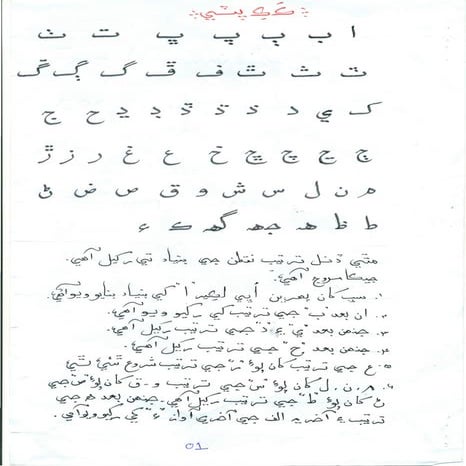 ڪکڪ پٽي
ا ب ٻ پ ڀ ت ن
ٿ ٽ ث ف ڦ گ ڳ ڱ
ک ي د ذ ڌ ڊ ڍ ح ج
ڄ ڃ چ ڇ خ غ ع ر ز ڙ
م ن ل س ش و ق ص ض ڻ
ط ظ ھ جھ گھ ڪ ء
مٿي ڏنل ترتيب نقطن جي بنياد تي رکيل آهي.
جيڪا سروچ آهي:
1. سب کان پهرين اُڀي ليڪير "ا" کي بنياد بنايو ويو آهي.
2. ان بعد "ب" جي ترتيب کي رکيو ويو آهي.
3. جنهن بعد "ي" ۽ "د" جي ترتيب رکيل آهي.
4. جنهن بعد "ح" جي ترتيب رکيل آهي.
5. ع جي ترتيب کان پوءِ "ر" جي ترتيب شروع ٿئي ٿي
6. م، ن، ل کان پوءِ "س" جي ترتيب و-ق کان پوءِ "ص" جي
ڻ کان پوءِ "ط" جي ترتيب رکيل آهي. جنهن بعد ھ جي
ترتيب ۽ آخر ۾ الف جي آخري آواز "ء" کي رکيو ويو آهي.
01